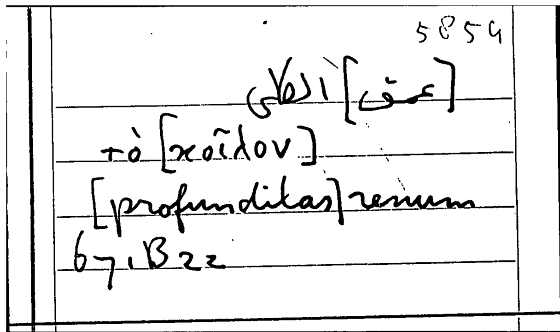 5854
[عمق] الكلى
τὸ [κοῖλον]
[profunditas] renum
671B22